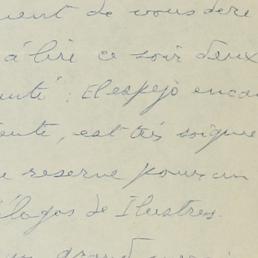 ent de vous dire
à lire ce soir deux
uté : El espejo enca
ente, est très soigné
e reserve pour un
álogos de Ilustres.
un grand